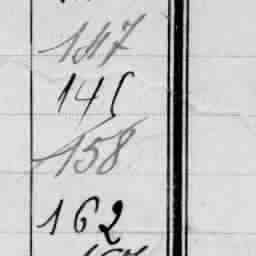 147
145
158
162